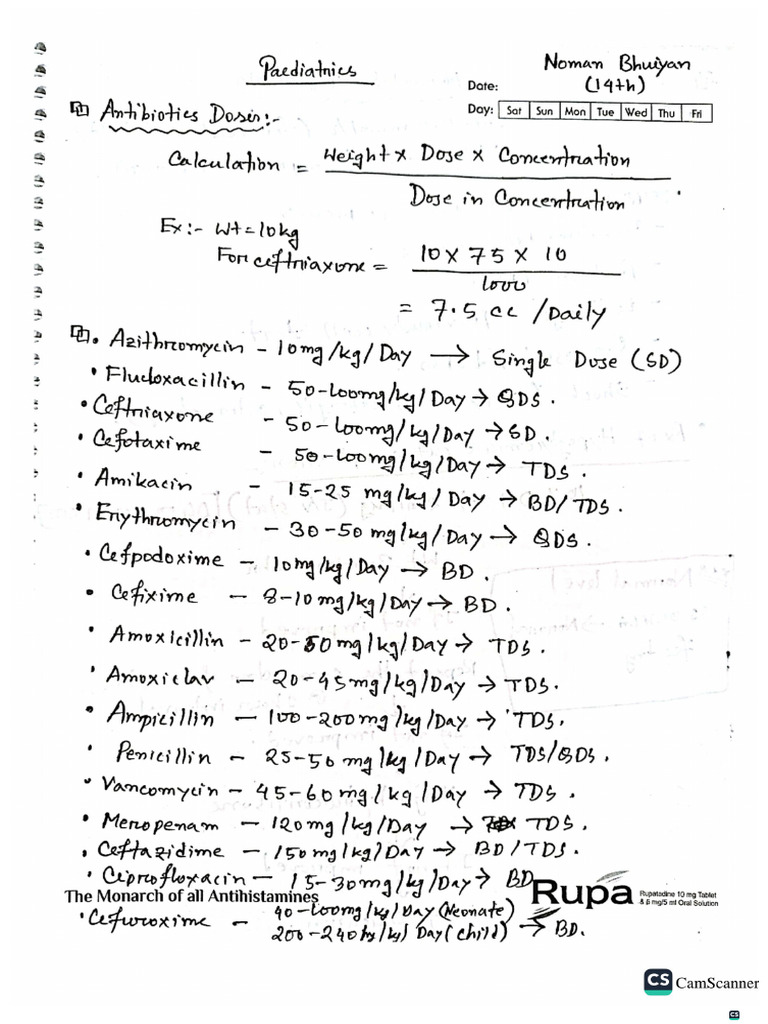 Paediatrics
Noman Bhuiyan
(14th)
Date:
Day: Sat Sun Mon Tue Wed Thu Fri
Antibiotics Doses:-
Calculation = Weight x Dose x Concentration
Dose in Concentration
Ex:- Wt = 10kg
For ceftriaxone = 10 x 75 x 10
1000
= 7.5 cc /Daily
• Azithromycin - 10mg/kg/Day → Single Dose (SD)
• Flucloxacillin - 50-100mg/kg/Day → QDS.
• Ceftriaxone - 50-100mg/kg/Day → SD.
• Cefotaxime - 50-100mg/kg/Day → TDS.
• Amikacin - 15-25 mg/kg/Day → BD/TDS.
• Erythromycin - 30-50mg/kg/Day → QDS.
• Cefpodoxime - 10mg/kg/Day → BD.
• Cefixime - 8-10mg/kg/Day → BD.
• Amoxicillin - 20-50mg/kg/Day → TDS.
• Amoxiclav - 20-45mg/kg/Day → TDS.
• Ampicillin - 100-200mg/kg/Day → TDS.
• Penicillin - 25-50mg/kg/Day → TDS/QDS.
• Vancomycin - 45-60mg/kg/Day → TDS.
• Meropenam - 120mg/kg/Day → TDS.
• Ceftazidime - 150mg/kg/Day → BD/TDS.
• Ciprofloxacin - 15-30mg/kg/Day → BD
The Monarch of all Antihistamines
Rupa
Rupatadine 10 mg Tablet
& 5 mg/5 ml Oral Solution
• Cefuroxime - 40-100mg/kg/Day (Neonate)
200-240 /kg/Day (child) → BD.
CS CamScanner
CS